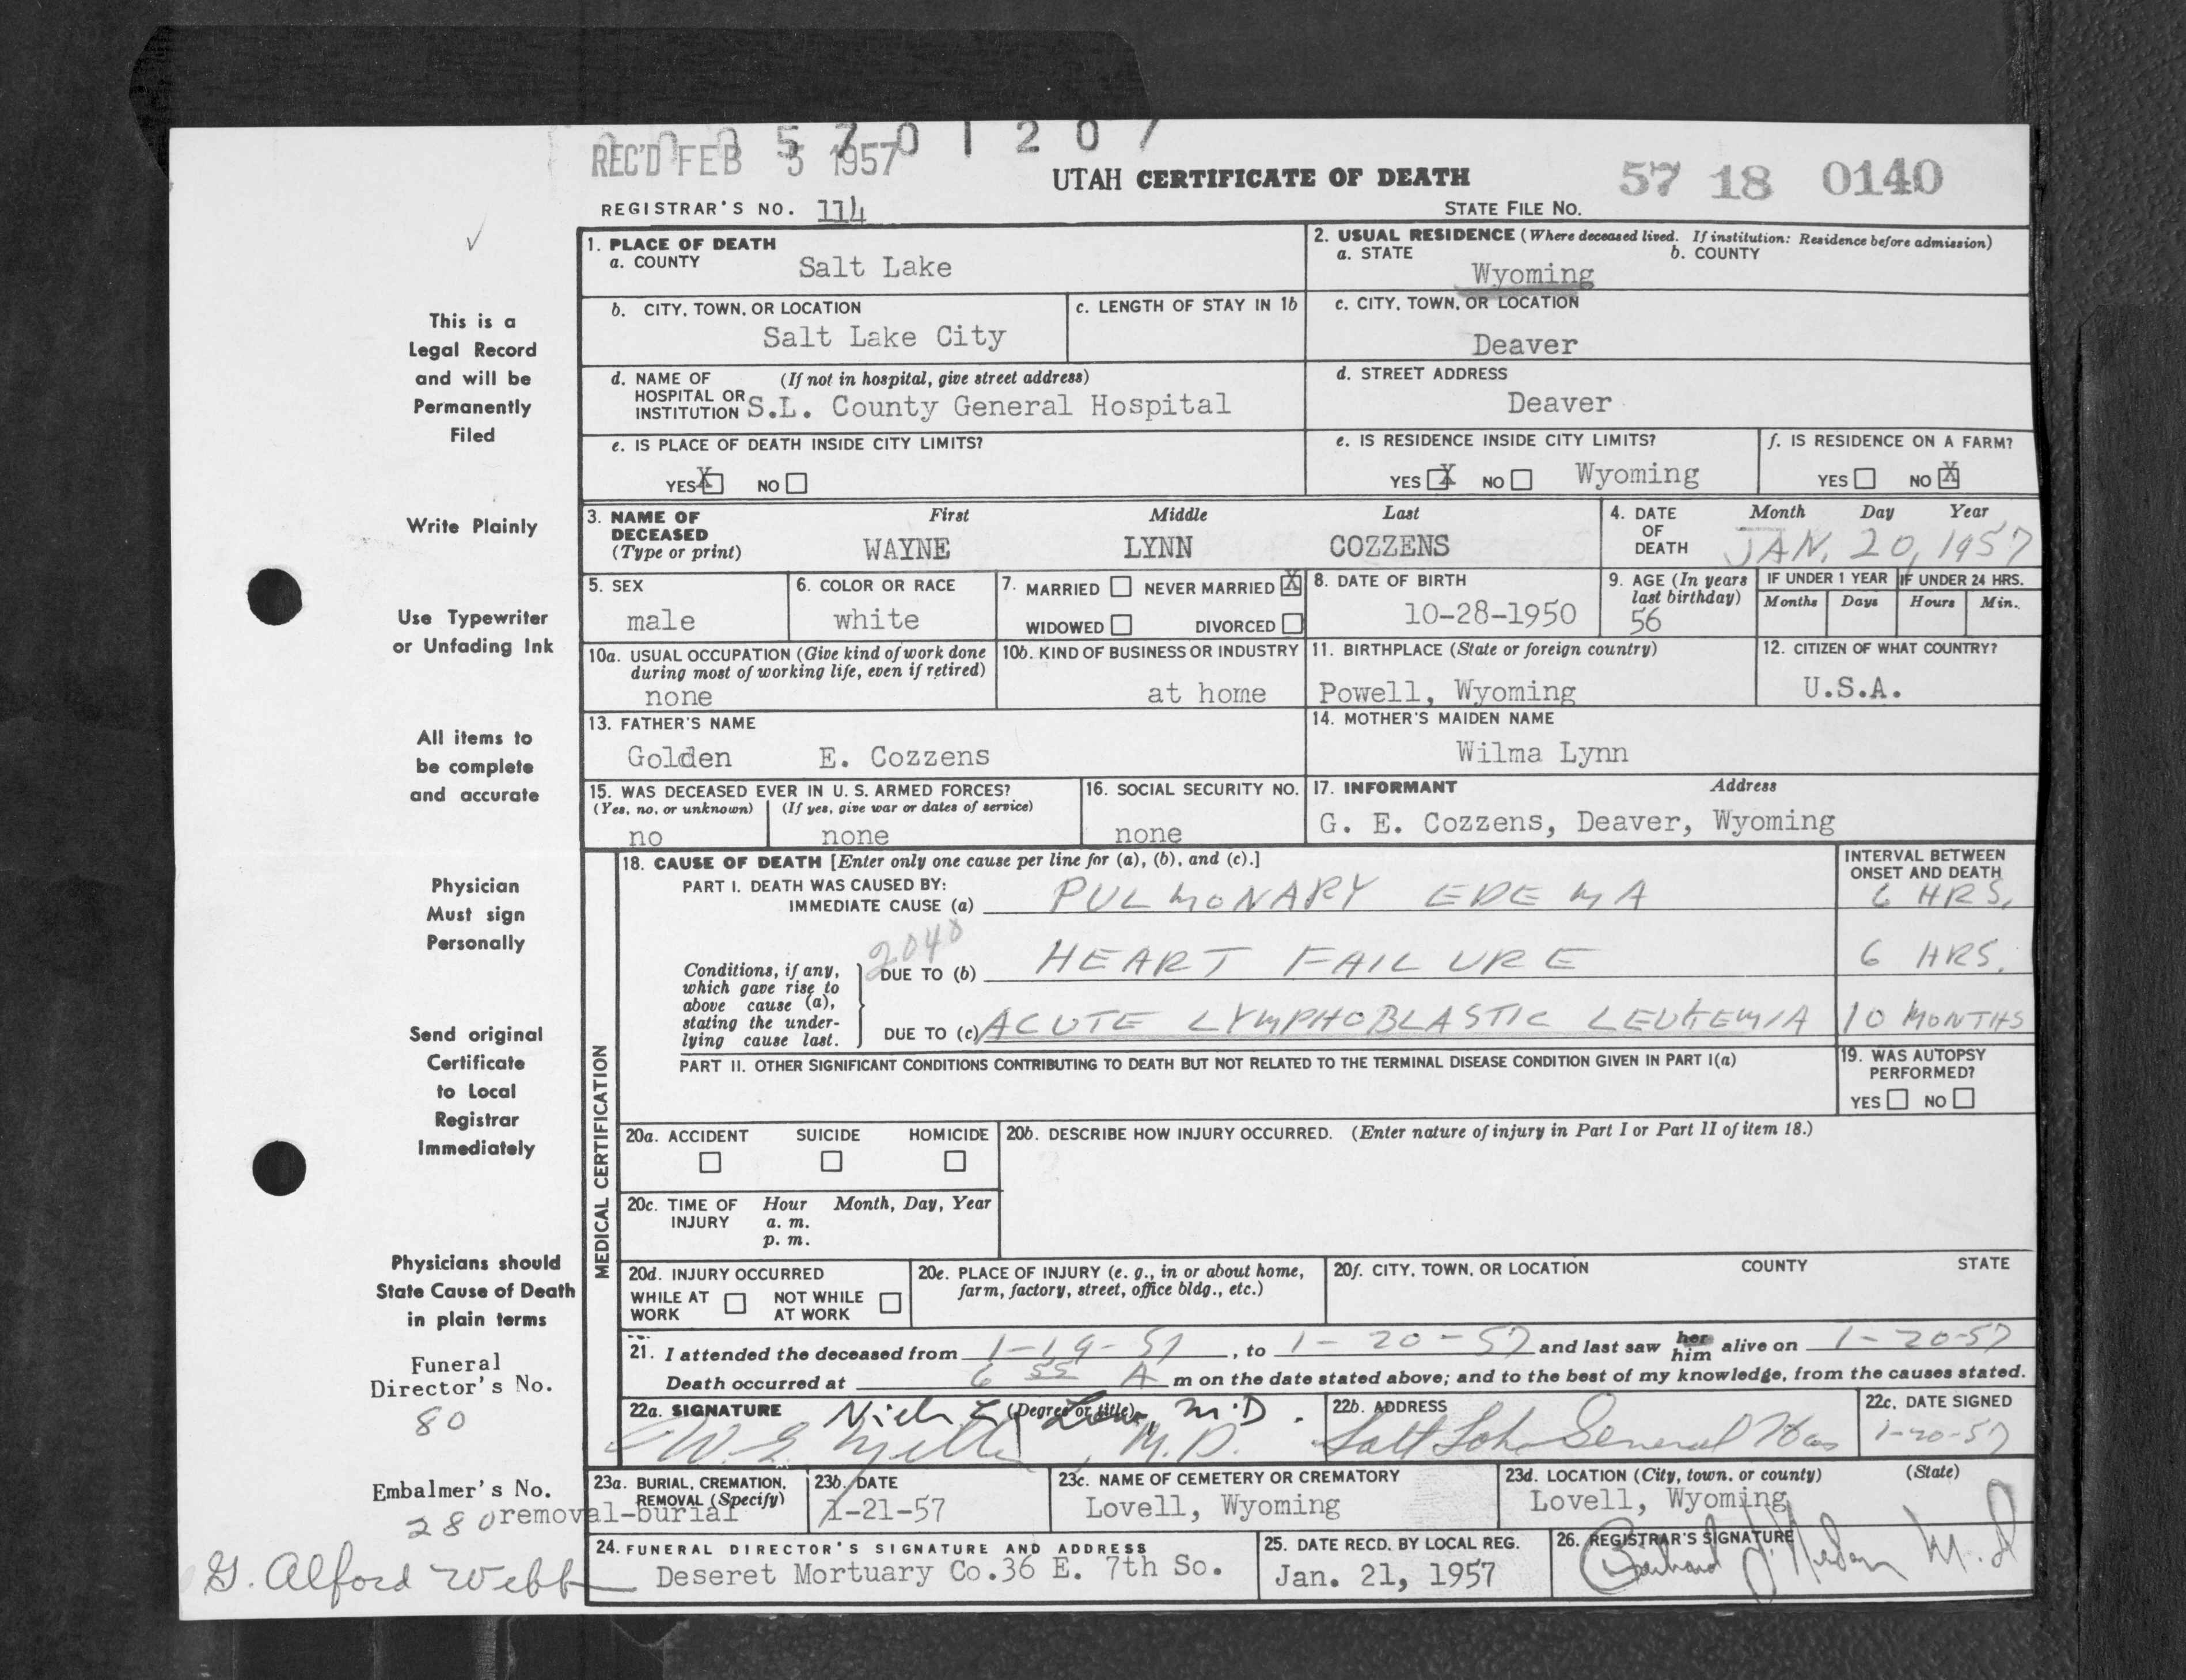 REC'D FEB 5 1957
5 7 0 1 2 0 7
UTAH CERTIFICATE OF DEATH
57 18 0140
REGISTRAR'S NO. 114
STATE FILE NO.
This is a
Legal Record
and will be
Permanently
Filed
Write Plainly
Use Typewriter
or Unfading Ink
All items to
be complete
and accurate
Physician
Must sign
Personally
Send original
Certificate
to Local
Registrar
Immediately
Physicians should
State Cause of Death
in plain terms
Funeral
Director's No.
80
Embalmer's No.
280
G. Alford Webb
1. PLACE OF DEATH
a. COUNTY
Salt Lake
2. USUAL RESIDENCE (Where deceased lived. If institution: Residence before admission)
a. STATE b. COUNTY
Wyoming
b. CITY, TOWN, OR LOCATION
Salt Lake City
c. LENGTH OF STAY IN 1b
c. CITY, TOWN, OR LOCATION
Deaver
d. NAME OF (If not in hospital, give street address)
HOSPITAL OR
INSTITUTION S.L. County General Hospital
d. STREET ADDRESS
Deaver
e. IS PLACE OF DEATH INSIDE CITY LIMITS?
YES X NO
e. IS RESIDENCE INSIDE CITY LIMITS?
YES X NO Wyoming
f. IS RESIDENCE ON A FARM?
YES NO X
3. NAME OF First Middle Last
DECEASED
(Type or print) WAYNE LYNN COZZENS
4. DATE Month Day Year
OF
DEATH JAN. 20, 1957
5. SEX
male
6. COLOR OR RACE
white
7. MARRIED NEVER MARRIED X
WIDOWED DIVORCED
8. DATE OF BIRTH
10-28-1950
9. AGE (In years
last birthday)
56
IF UNDER 1 YEAR IF UNDER 24 HRS.
Months Days Hours Min.
10a. USUAL OCCUPATION (Give kind of work done
during most of working life, even if retired)
none
10b. KIND OF BUSINESS OR INDUSTRY
at home
11. BIRTHPLACE (State or foreign country)
Powell, Wyoming
12. CITIZEN OF WHAT COUNTRY?
U.S.A.
13. FATHER'S NAME
Golden E. Cozzens
14. MOTHER'S MAIDEN NAME
Wilma Lynn
15. WAS DECEASED EVER IN U. S. ARMED FORCES?
(Yes, no, or unknown) (If yes, give war or dates of service)
no none
16. SOCIAL SECURITY NO.
none
17. INFORMANT Address
G. E. Cozzens, Deaver, Wyoming
MEDICAL CERTIFICATION
18. CAUSE OF DEATH [Enter only one cause per line for (a), (b), and (c).]
INTERVAL BETWEEN
ONSET AND DEATH
PART I. DEATH WAS CAUSED BY:
IMMEDIATE CAUSE (a) PULMONARY EDEMA 6 HRS.
2040
Conditions, if any,
which gave rise to
above cause (a),
stating the under-
lying cause last.
DUE TO (b) HEART FAILURE 6 HRS.
DUE TO (c) ACUTE LYMPHOBLASTIC LEUKEMIA 10 MONTHS
PART II. OTHER SIGNIFICANT CONDITIONS CONTRIBUTING TO DEATH BUT NOT RELATED TO THE TERMINAL DISEASE CONDITION GIVEN IN PART I(a)
19. WAS AUTOPSY
PERFORMED?
YES NO
20a. ACCIDENT SUICIDE HOMICIDE
20b. DESCRIBE HOW INJURY OCCURRED. (Enter nature of injury in Part I or Part II of item 18.)
20c. TIME OF Hour Month, Day, Year
INJURY a. m.
p. m.
20d. INJURY OCCURRED
WHILE AT NOT WHILE
WORK AT WORK
20e. PLACE OF INJURY (e. g., in or about home,
farm, factory, street, office bldg., etc.)
20f. CITY, TOWN, OR LOCATION COUNTY STATE
21. I attended the deceased from 1-19-57, to 1-20-57 and last saw her him alive on 1-20-57
Death occurred at 6 55 A m on the date stated above; and to the best of my knowledge, from the causes stated.
22a. SIGNATURE (Degree or title) M.D.
W. E. M.D.
22b. ADDRESS
Salt Lake General Hos
22c. DATE SIGNED
1-20-57
23a. BURIAL, CREMATION,
REMOVAL (Specify)
removal-burial
23b. DATE
1-21-57
23c. NAME OF CEMETERY OR CREMATORY
Lovell, Wyoming
23d. LOCATION (City, town, or county) (State)
Lovell, Wyoming
24. FUNERAL DIRECTOR'S SIGNATURE AND ADDRESS
Deseret Mortuary Co. 36 E. 7th So.
25. DATE RECD. BY LOCAL REG.
Jan. 21, 1957
26. REGISTRAR'S SIGNATURE
M.D